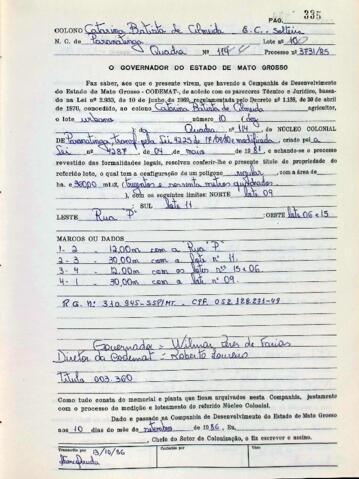 PÁG. 335
COLONO Catarina Batista de Almeida B.C. - solteira
N. C. de Paranatinga Lote nº 10
Quadra Nº 114 Processo nº 3731/85
O GOVERNADOR DO ESTADO DE MATO GROSSO
Faz saber, aos que o presente virem, que havendo a Companhia de Desenvolvimento
do Estado de Mato Grosso - CODEMAT-, de acordo com os pareceres Técnico e Jurídico, basea-
do na Lei nº 2.933, de 10 de junho de 1969, regulamentada pelo Decreto nº 1.138, de 30 de abril
de 1970, concedido, ao colono Catarina Batista de Almeida agricultor,
o lote urbano nº 10 (dez)
da Quadra nº 114 DE NÚCLEO COLONIAL
DE Paranatinga, transf. pela Lei 4225 modificada, criado pela
Lei nº 4287 de 04 de maio de 1981, e achando-se o processo
revestido das formalidades legais, resolveu conferir-lhe o presente título de propriedade do
referido lote, o qual tem a configuração de um polígono regular com a área de
ha. e 360,00 mt.2 (trezentos e sessenta metros quadrados)
, com os seguintes limites: NORTE lote 09
SUL lote 11
LESTE Rua "P" OESTE lote 06 e 15
MARCOS OU DADOS
1 - 2 - 12,00m com a Rua "P"
2 - 3 - 30,00m com o lote nº 11.
3 - 4 - 12,00m com os lotes nºs 15 e 06
4 - 1 - 30,00m com o lote nº 09.
R.G. nº 310.945-SSP/MT. - CPF. 052.128.231-49
Governador = Wilmar Peres de Farias
Diretor da Codemat = Roberto Loureiro
Título 003.360
Como tudo consta do memorial e planta que ficam arquivados nesta Companhia, juntamente
com o processo de medição e loteamento do referido Núcleo Colonial.
Dado e passado na Companhia de Desenvolvimento do Estado de Mato Grosso
aos 10 dias do mês de setembro de 1986. Eu,
, Chefe do Setor de Colonização, o fiz escrever e assino.
Transcrito por 13/10/86
Conferido por
Visto